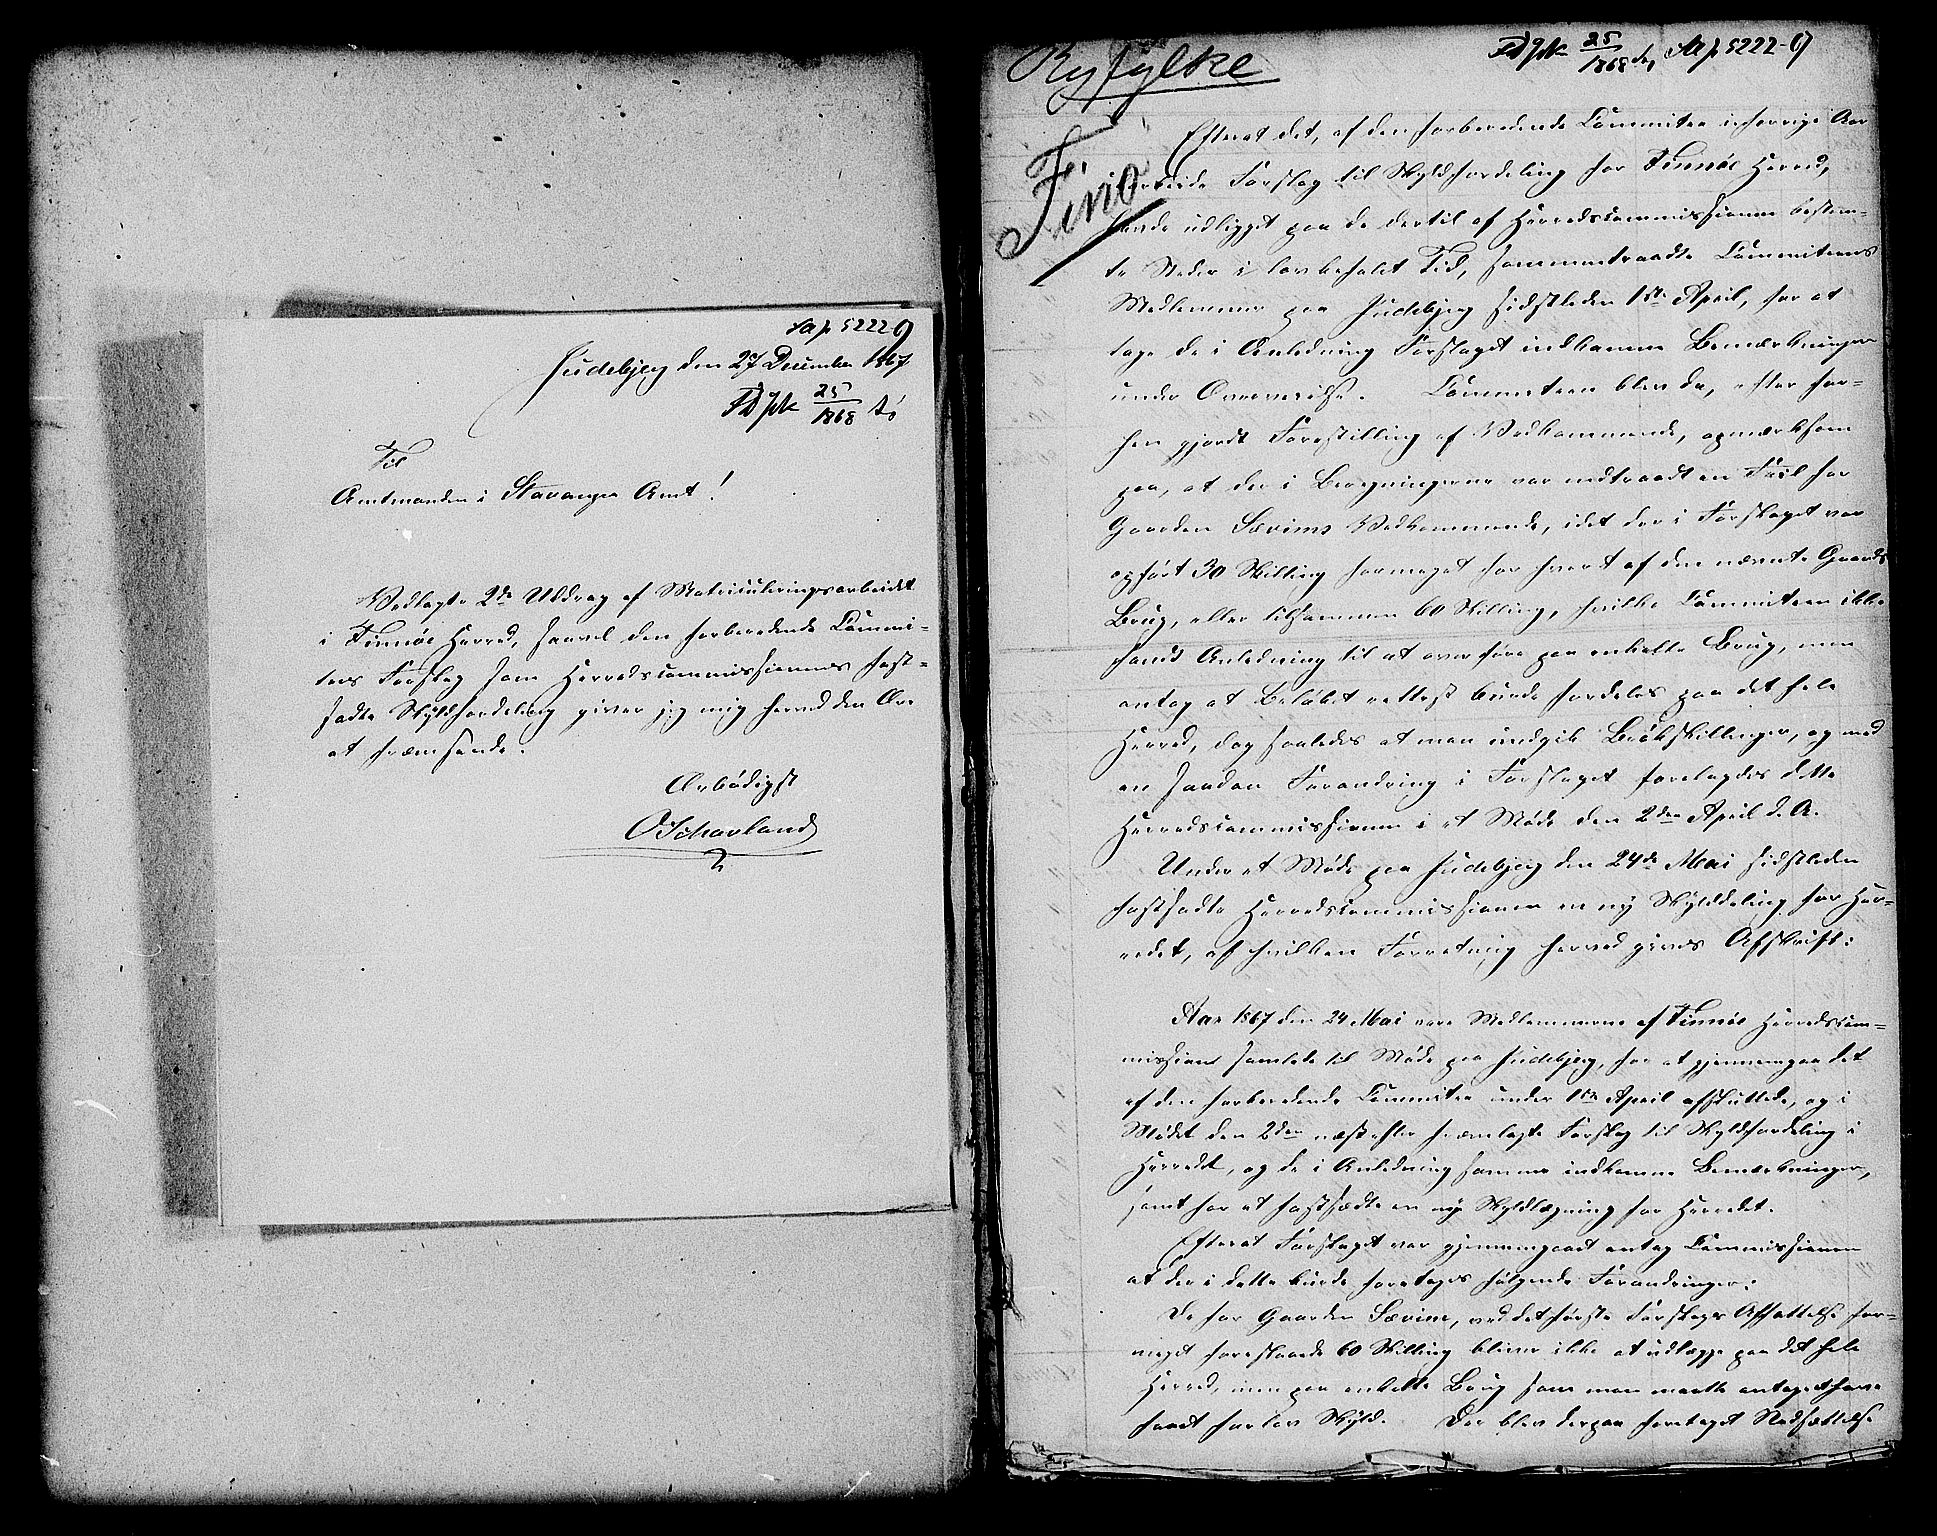 Sa p 5222-9
Judebjerg den 27 December 1867
FD jk 25/1868
Til
Amtmanden i Stavanger Amt!
Vedlagte 2de Uddrag af Matriculeringsarbeidet
i Finnöe Herred, saavel den forberedende Commi-
tees Forslag som Herredscommissionens fast-
satte Skyldfordeling giver jeg mig herved den Ære
at fremsende.
Ærbödigst
O Scharland
Ryfylke
25/1868 5222-9
Finö
Efterat det, af den forberedende Committee i forrige Aar
Forslag til Skyldfordeling for Finnöe Herred,
havde udligget paa de dertil af Herredscommissionen bestem-
te Steder i lovbefalet Tid, sammentraadte Committeens
Medlemmer paa Judebjerg sidstleden 1ste April, for at
tage de i Anledning Forslaget indkomne Bemærkninger
under Overveielse. Committeen blev da, efter for-
hen gjordt Forestilling af Vedkommende, opmærksom
paa, at der i Beregningerne var indtraadt en Feil for
Gaarden Sævims Vedkommende, idet der i Forslaget var
opfört 30 Skilling formeget for hvert af den nævnte Gaards
Brug, eller tilsammen 60 Skilling, hvilke Committeen ikke
fandt Anledning til at overföre paa enkelte Brug, men
antog at Belöbet rettest burde fordeles paa det hele
Herred, dog saaledes at man undgik Brökskillinger, og med
en saadan Forandring i Forslaget forelagdes dette
Herredscommissionen i et Möde den 2den April d. A.
Under et Möde paa Judebjerg den 24de Mai sidstleden
fastsatte Herredscommissionen en ny Skylddeling for Her-
redet, af hvilken Forretning herved gives Afskrift:
Aar 1867 den 24 Mai vare Medlemmerne af Finnöe Herredscom-
mission samlede til Möde paa Judebjerg, for at gjennemgaa det
af den forberedende Committee under 1ste April afsluttede, og i
Mödet den 2den næstefter fremlagte Forslag til Skyldfordeling i
Herredet, og de i Anledning samme indkomne Bemærkninger,
samt for at fastsætte en ny Skyldlægning for Herredet.
Efterat Forslaget var gjennemgaaet antog Commissionen
at der i dette burde foretages fölgende Forandringer:
De for Gaarden Sævim, ved det förste Forslags Affattelse for-
meget foreslaaede 60 Skilling bliver ikke at udlægge paa det hele
Herred, men paa enkelte Brug som man maatte antaget have
faaet for lav Skyld. Der blev derpaa foretaget Nedsættelse